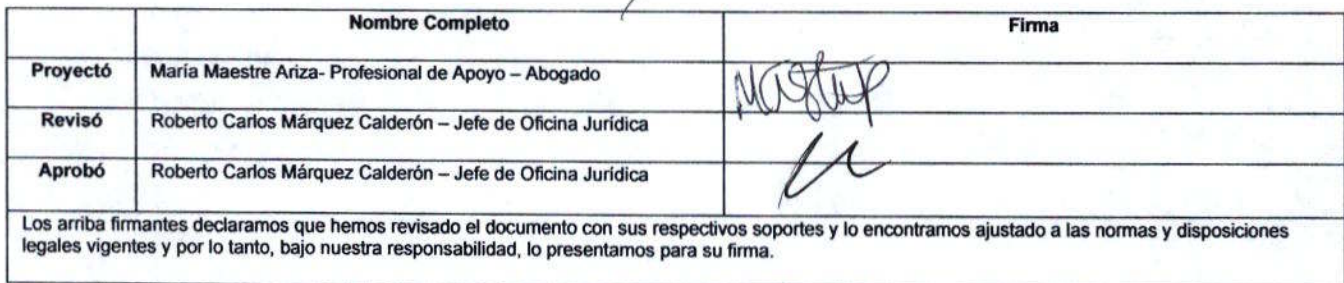 Nombre Completo Firma
Proyectó María Maestre Ariza- Profesional de Apoyo – Abogado
Revisó Roberto Carlos Márquez Calderón – Jefe de Oficina Jurídica
Aprobó Roberto Carlos Márquez Calderón – Jefe de Oficina Jurídica
Los arriba firmantes declaramos que hemos revisado el documento con sus respectivos soportes y lo encontramos ajustado a las normas y disposiciones
legales vigentes y por lo tanto, bajo nuestra responsabilidad, lo presentamos para su firma.